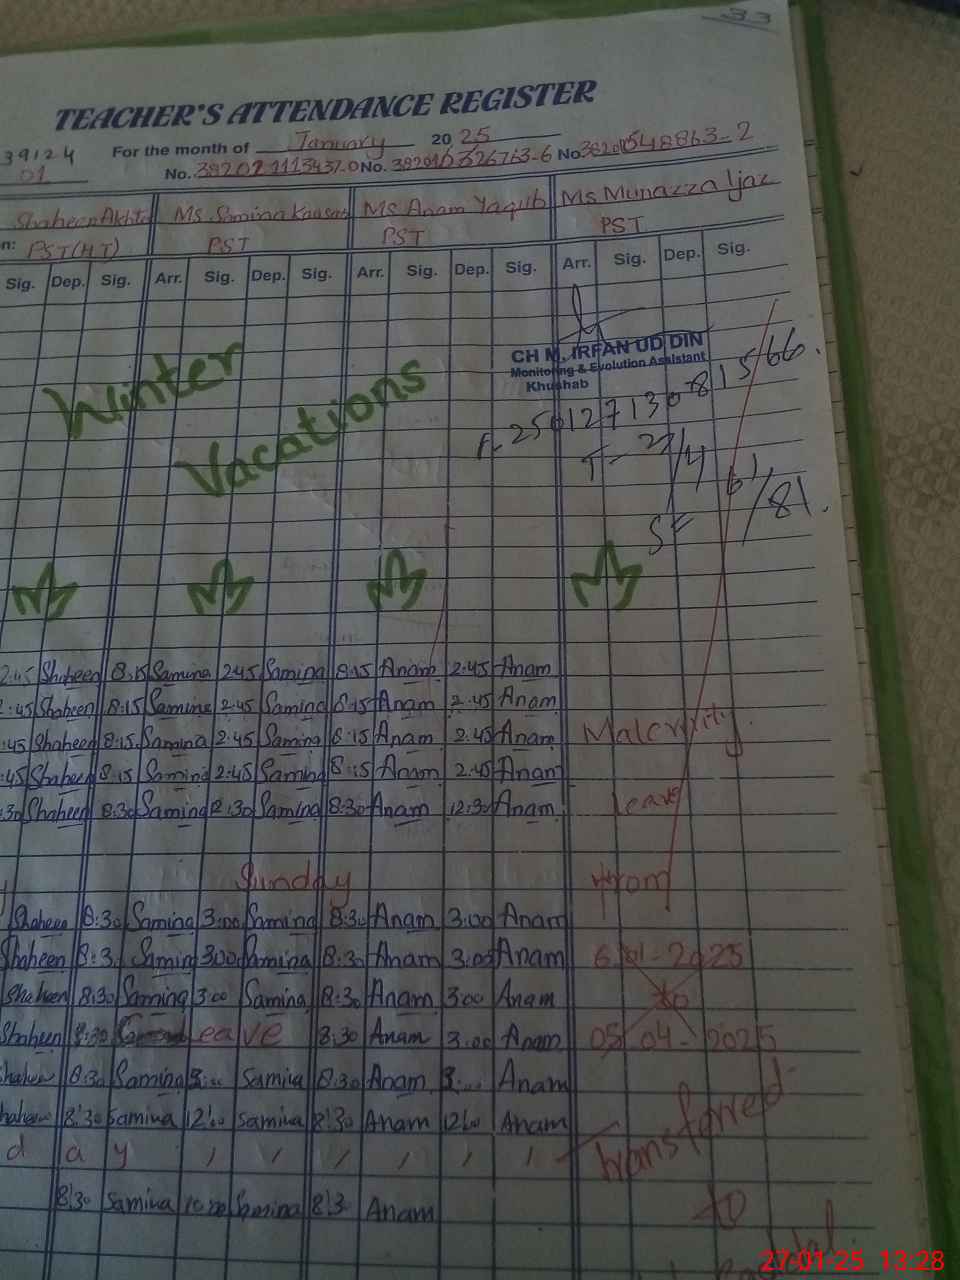 33
TEACHER'S ATTENDANCE REGISTER
39124 For the month of January 2025
01 No. 38202 1113437-0 No. No. 2
Shaheen Akhta Ms Samina Kausar Ms Anam Yaqub Ms Munazza Ijaz
n: PST(HT) PST PST PST
Sig. Dep. Sig. Arr. Sig. Dep. Sig. Arr. Sig. Dep. Sig. Arr. Sig. Dep. Sig.
CH M. IRFAN UD DIN
Monitoring & Evolution Assistant
Khushab
Winter
Vacations
2:45 Shaheen 8:15 Samina 2:45 Samina 8:15 Anam 2:45 Anam
:45 Shaheen 8:15 Samina 2:45 Samina 8:15 Anam 2:45 Anam
:45 Shaheen 8:15 Samina 2:45 Samina 8:15 Anam 2:45 Anam
:45 Shaheen 8:15 Samina 2:45 Samina 8:15 Anam 2:45 Anam
:30 Shaheen 8:30 Samina 2:30 Samina 8:30 Anam 12:30 Anam
leave
Sunday from
Shaheen 8:30 Samina 3:00 Samina 8:30 Anam 3:00 Anam
Shaheen 8:3 Samina 300 Samina 8:30 Anam 3:00 Anam 6-01-2025
Shaheen 8:30 Samina 3:00 Samina 8:30 Anam 300 Anam to
Shaheen 8:30 Leave 8:30 Anam 3:00 Anam 05-04-2025
8:30 Samina 3:00 Samina 8:30 Anam 3:00 Anam
8:30 Samina 12:00 Samina 8:30 Anam 12:00 Anam
d a y Transferred
8:30 Samina Samina 8:3 Anam to
27-01-25 13:28